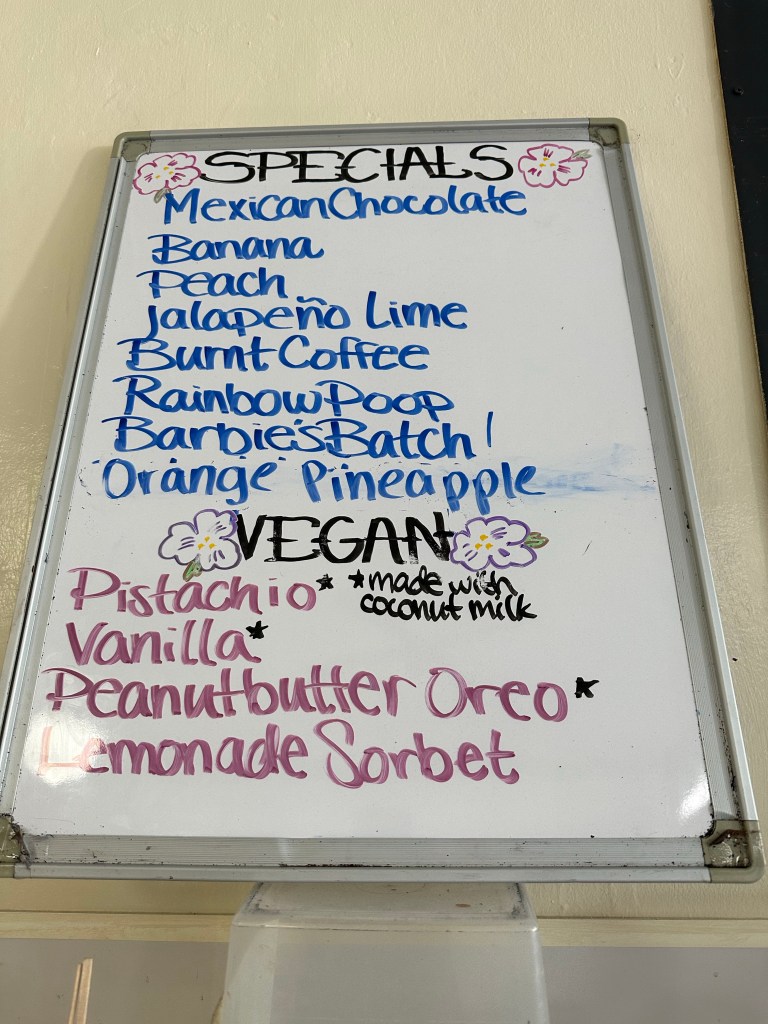 SPECIALS
Mexican Chocolate
Banana
Peach
Jalapeño Lime
Burnt Coffee
Rainbow Poop
Barbie's Batch!
Orange Pineapple
VEGAN
Pistachio* *made with
coconut milk
Vanilla*
Peanutbutter Oreo*
Lemonade Sorbet